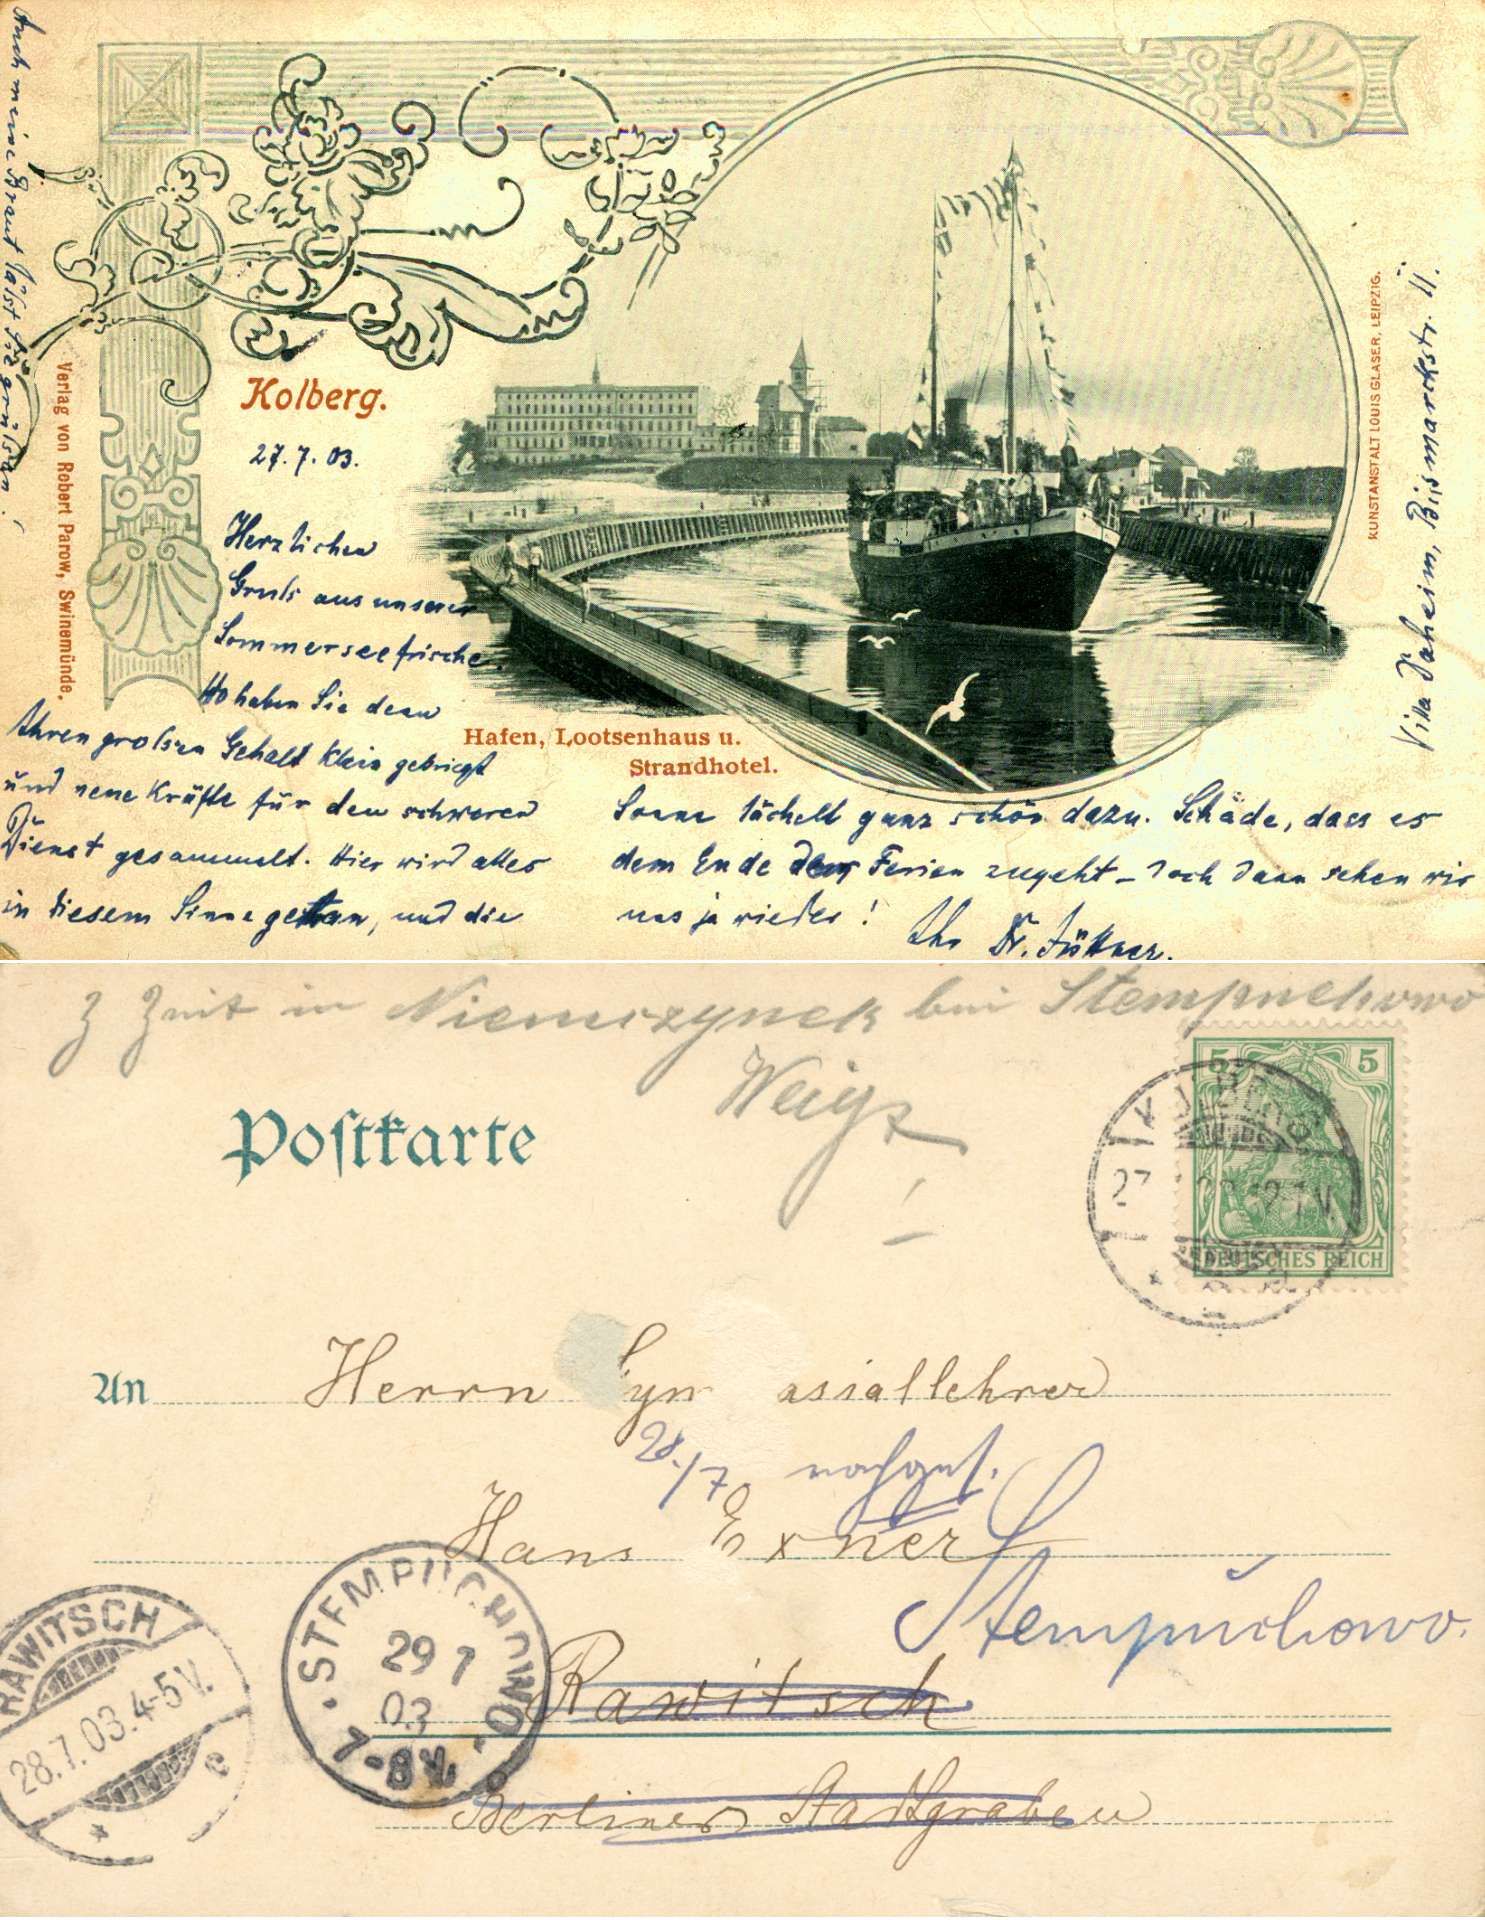 Auch meine Braut läst sie grüssen!
Verlag von Robert Parow, Swinemünde.
Kolberg.
27. 7. 03.
Herzlichen
Gruss aus unserer
Sommerseefrische.
Wo haben Sie denn
Ihren grossen Gehalt klein gekriegt
und neue Kräfte für den schweren
Dienst gesammelt. Hier wird alles
in diesem Sinne getan, und die
Hafen, Lootsenhaus u.
Strandhotel.
Sonne lächelt ganz schön dazu. Schade, dass es
dem Ende der Ferien zugeht – doch dann sehen wir
uns ja wieder!
Ihr Dr. Jüttner.
KUNSTANSTALT LOUIS GLASER, LEIPZIG.
Villa Daheim, Bismarckstr. 11.
z Zeit in Niemczynek bei Stempuchowo
Postkarte
5 5
DEUTSCHES REICH
KOLBERG
27
2-7 V.
An Herrn Gymnasiallehrer
28./7 nachges.
Hans Exner
Stempuchowo.
STEMPUCHOWO
29 7
03
7-8 V.
RAWITSCH
28.7.03.4-5 V.
c
Rawitsch
Berliner Stadtgraben